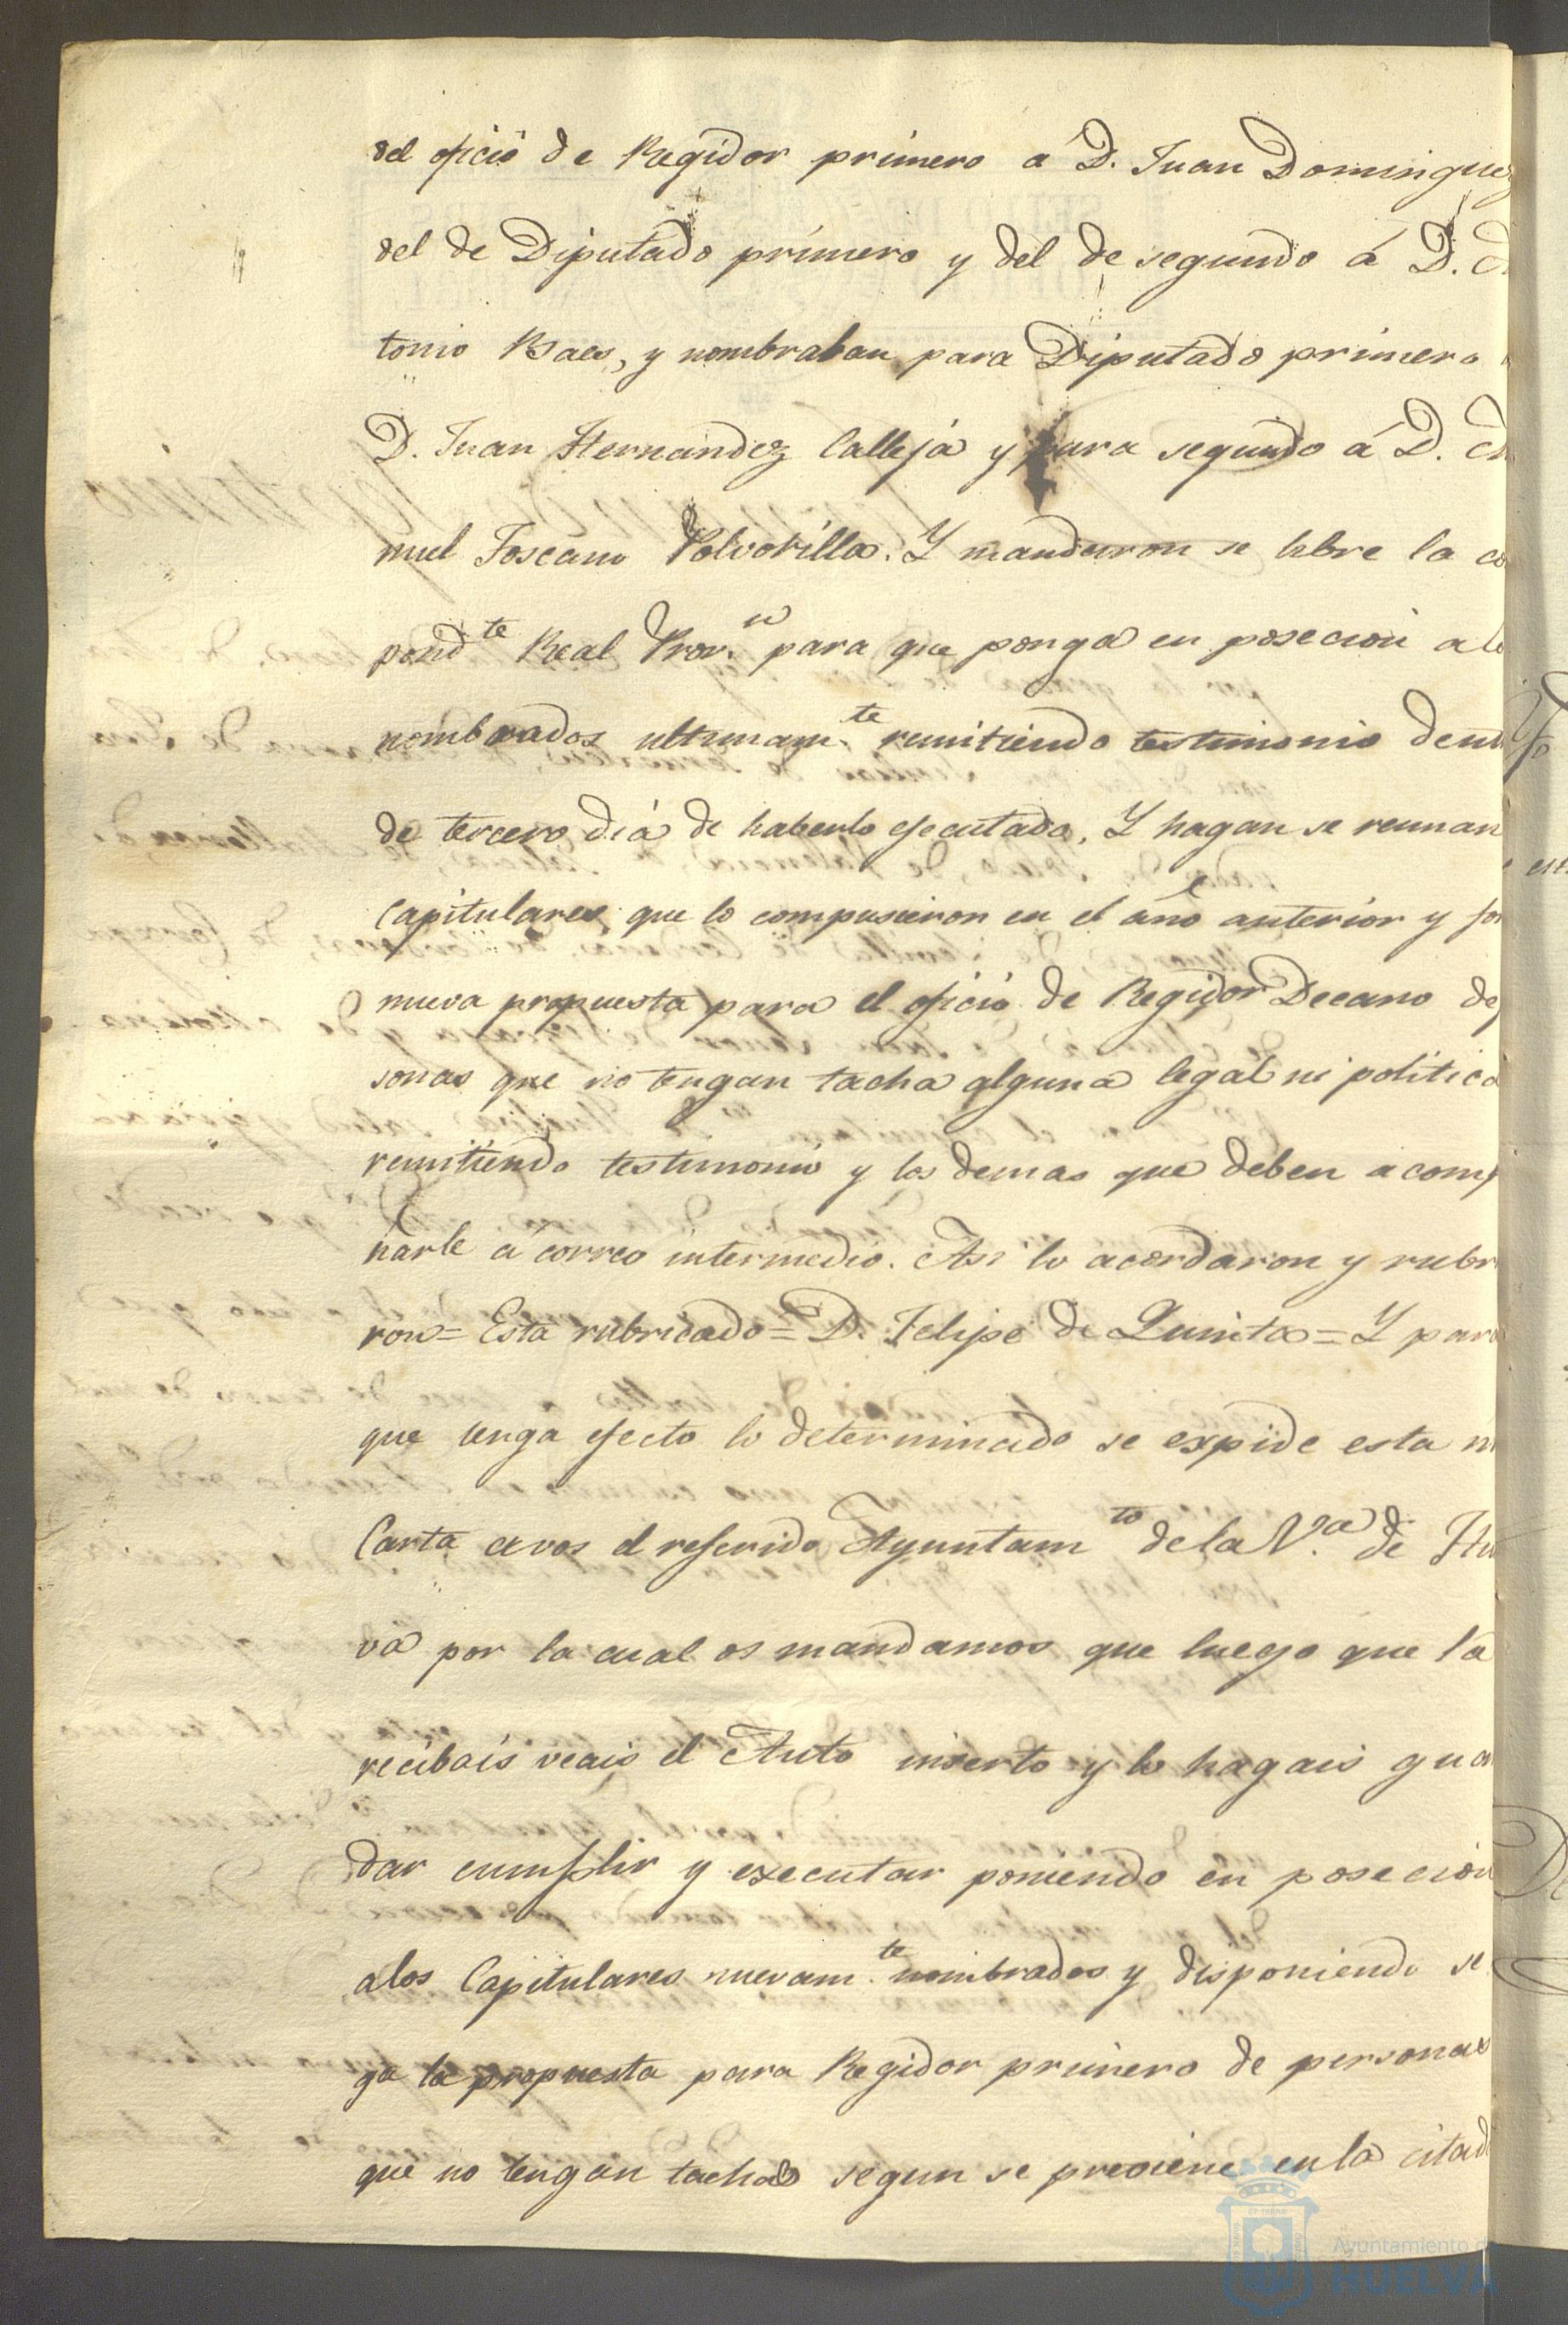 del oficio de Regidor primero á D. Juan Dominguez
del de Diputado primero y del de segundo á D.
tonio Baes, y nombraban para Diputado primero
D. Juan Hernandez Calleja y para segundo á D.
nuel Toscano Polvorilla. Y mandaron se libre la co
pond.te Real Prov.n para que ponga en posecion a lo
nombrados ultimam.te remitiendo testimonio dent
de tercero dia de haberlo efecutado, Y hagan se reunan
Capitulares que lo compusieron en el año anterior y for
nueva propuesta para el oficio de Regidor Decano de
sonas que no tengan tacha alguna legal ni politica
remitiendo testimonio y los demas que deben acomp
ñarle á correo intermedio. Asi lo acordaron y rubri
ron = Esta rubricado = D. Felipe de Quinta = Y para
que tenga efecto lo determinado se expide esta n
Carta avos el referido Ayuntam.to de la V.a de Hu
va por la cual os mandamos que luego que la
recibais veais el Auto inserto y lo hagais gua
dar cumplir y executar poniendo en posecion
alos Capitulares nuevam.te nombrados y disponiendo se
ga la propuesta para Regidor primero de personas
que no tengan tacha segun se previene en la citad
Ayuntamiento d
HUELVA